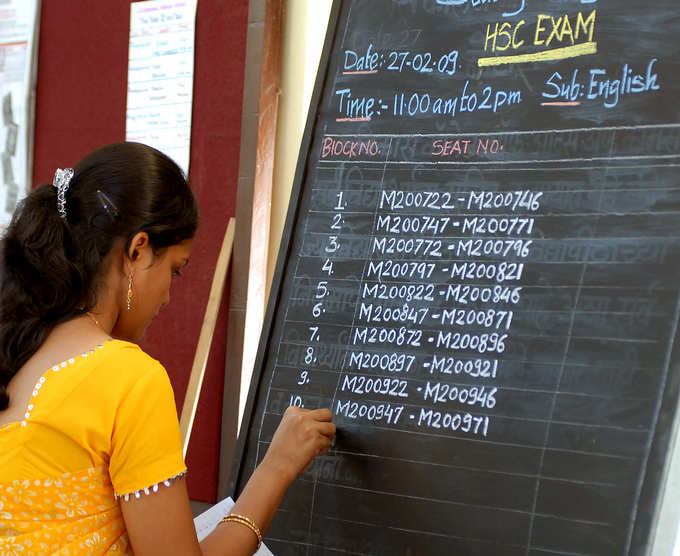 HSC EXAM
Date:- 27-02-09
Time:- 11:00 am to 2pm Sub: English
BlOCK NO. SEAT NO.
1. M200722 - M200746
2. M200747 - M200771
3. M200772 - M200796
4. M200797 - M200821
5. M200822 - M200846
6. M200847 - M200871
7. M200872 - M200896
8. M200897 - M200921
9. M200922 - M200946
10. M200947 - M200971